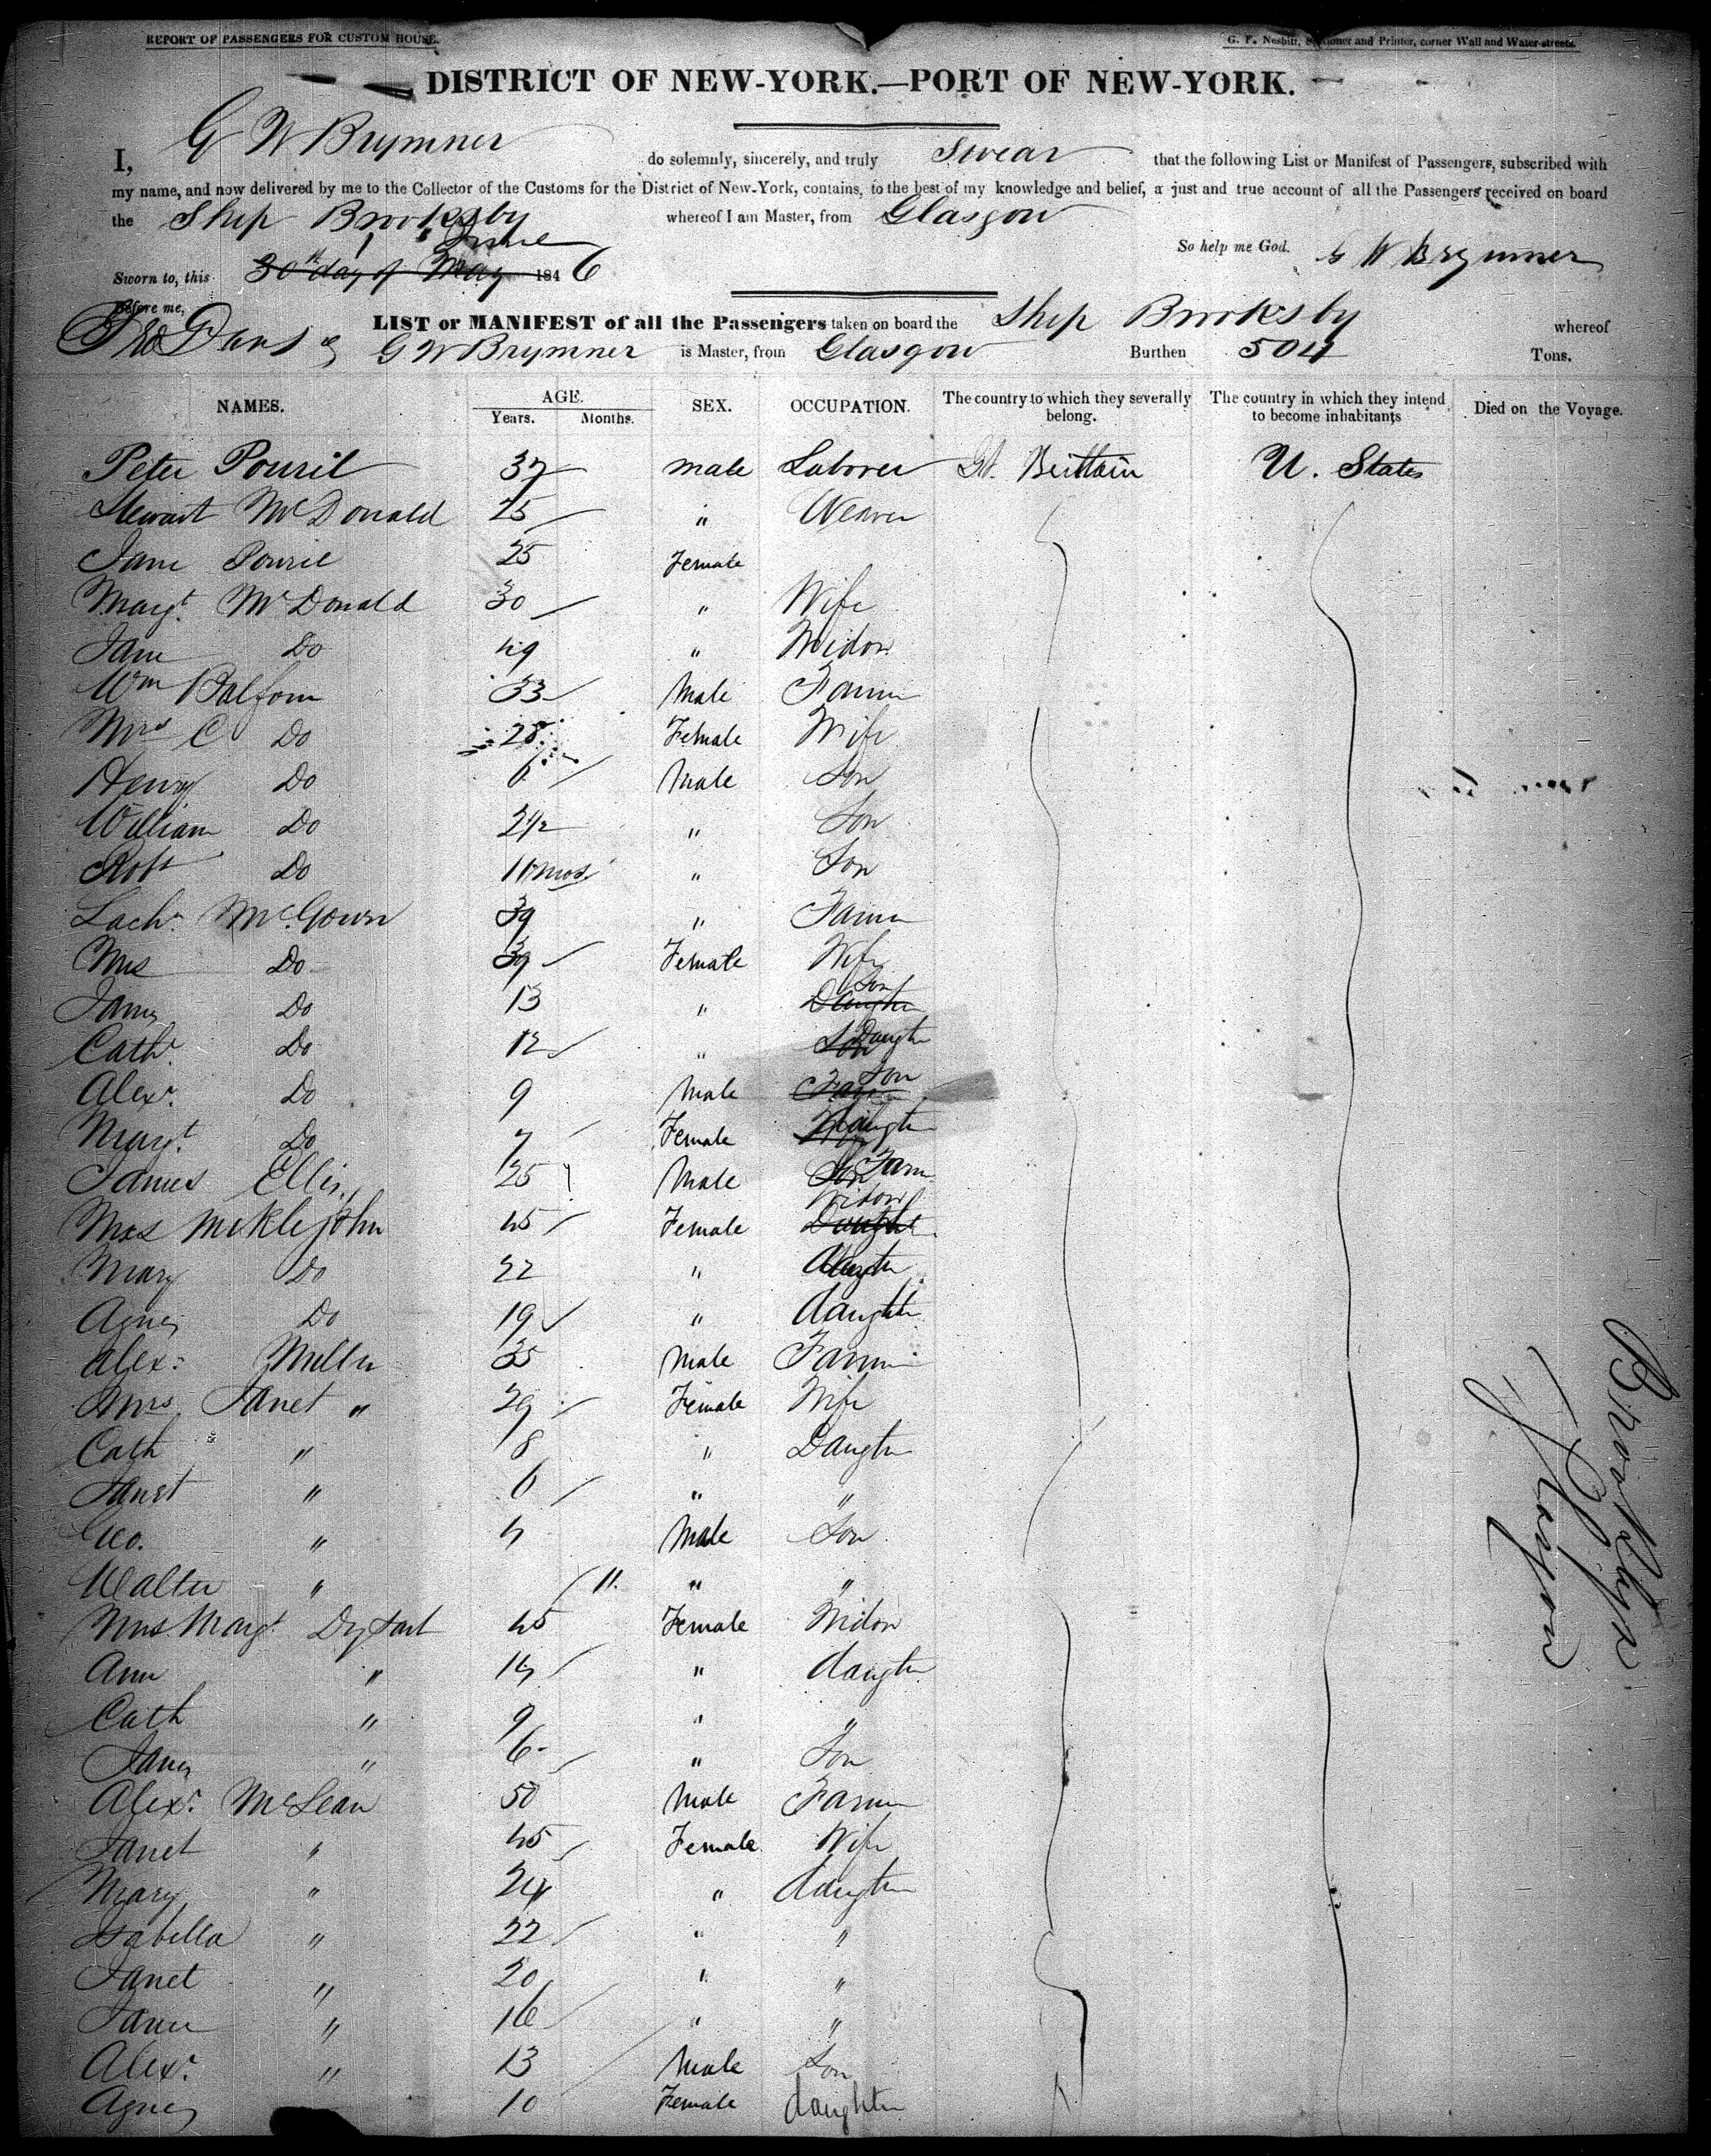 REPORT OF PASSENGERS FOR CUSTOM HOUSE.
G. F. Nesbitt, Stationer and Printer, corner Wall and Water-streets.
DISTRICT OF NEW-YORK.—PORT OF NEW-YORK.
I, G W Brymner do solemnly, sincerely, and truly Swear that the following List or Manifest of Passengers, subscribed with
my name, and now delivered by me to the Collector of the Customs for the District of New-York, contains, to the best of my knowledge and belief, a just and true account of all the Passengers received on board
the Ship Brooksby whereof I am Master, from Glasgow
So help me God. G W Brymner
1 June
Sworn to, this 30th day of May 1846
Before me,
LIST or MANIFEST of all the Passengers taken on board the Ship Brooksby whereof
G W Brymner is Master, from Glasgow Burthen 504 Tons.
NAMES. AGE. Years. Months. SEX. OCCUPATION. The country to which they severally belong. The country in which they intend to become inhabitants Died on the Voyage.
Peter Pouril 37 male Laborer Gt. Brittain U. States
Stewart McDonald 25 " Weaver
Jane Pouril 25 Female
Margt. McDonald 30 " Wife
Jane Do 49 " Widow
Wm Balfour 33 Male Farmer
Mrs C Do 28 Female Wife
Henry Do 6 Male Son
William Do 2 1/2 " Son
Robt Do 11 mos " Son
Lachn. McGown 39 " Farmer
Mrs Do 39 Female Wife
James Do 13 " Daughter Son
Cathr. Do 12 " Son Daugtr
Alexr. Do 9 Male Son
Margt. Do 7 Female Daugtr
James Ellis 25 Male Son Farm
Mrs Meklejohn 45 Female Daughter Widow
Mary Do 22 " daugtr
Agnes Do 19 " daughtr
Alexr. Miller 35 Male Farmer
Mrs Janet " 29 Female Wife
Cath " 8 " Daugtr
Janet " 6 " "
Geo. " 4 Male Son
Walter " 11. " "
Mrs Margt Dysart 45 Female Widow
Ann " 14 " daugtr
Cath " 9 " "
James " 6 " Son
Alexr. McLean 50 Male Farmer
Janet " 45 Female Wife
Mary " 24 " daugtr
Isabella " 22 " "
Janet " 20 " "
James " 16 " "
Alexr. " 13 Male Son
Agnes 10 Female daughter
Brooksby
Glasgow